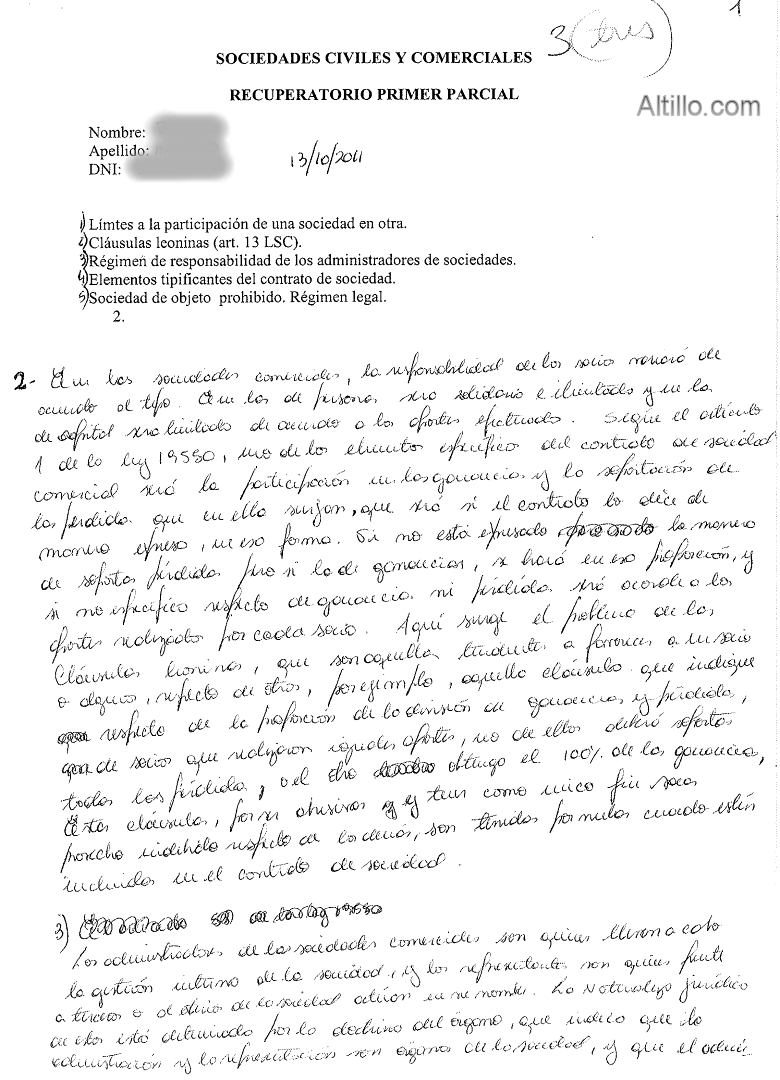 1
3 (tres)
SOCIEDADES CIVILES Y COMERCIALES
RECUPERATORIO PRIMER PARCIAL
Altillo.com
Nombre:
Apellido:
DNI:
13/10/2011
1) Límtes a la participación de una sociedad en otra.
2) Cláusulas leoninas (art. 13 LSC).
3) Régimen de responsabilidad de los administradores de sociedades.
4) Elementos tipificantes del contrato de sociedad.
5) Sociedad de objeto prohibido. Régimen legal.
2.
2- En las sociedades comerciales, la responsabilidad de los socio variará de
acuerdo al tipo. En las de personas será solidaria e ilimitada y en la
de capital será limitada de acuerdo a los aportes efectuados. Según el artículo
1 de la ley 19550, uno de los elementos específico del contrato de sociedad
comercial será la participación en las ganancias y la soportación de
las pérdidas que en ella surjan, que será si el contrato lo dice de
manera expresa, en esa forma. Si no está expresado la manera
de soportar pérdidas pero si la de ganancias, se hará en esa proporción, y
si no especifica respecto de ganancia ni pérdida será acorde a los
aportes realizados por cada socio. Aquí surge el problema de las
Cláusulas leoninas, que son aquellas tendientes a favorecer a un socio
o algunos, respecto de otros, por ejemplo, aquella cláusula que indique
respecto de la proporción de la división de ganancias y pérdidas,
de socios que realizaron iguales aportes, uno de ellos deberá soportar
todas las pérdidas, o el otro obtenga el 100% de las ganancias,
Estas cláusulas, por ser abusivas y tener como único fin sacar
provecho indebido respecto de los demás, son tenidas por nulas cuando estén
incluidas en el contrato de sociedad.
3)
Los administradores de las sociedades comerciales son quienes llevan a cabo
la gestión interna de la sociedad, y los representantes son quienes frente
a terceros o al de la sociedad actúan en su nombre. La Naturaleza jurídica
de estos está determinada por la doctrina del órgano, que indica que la
administración y la representación son órganos de la sociedad, y que el